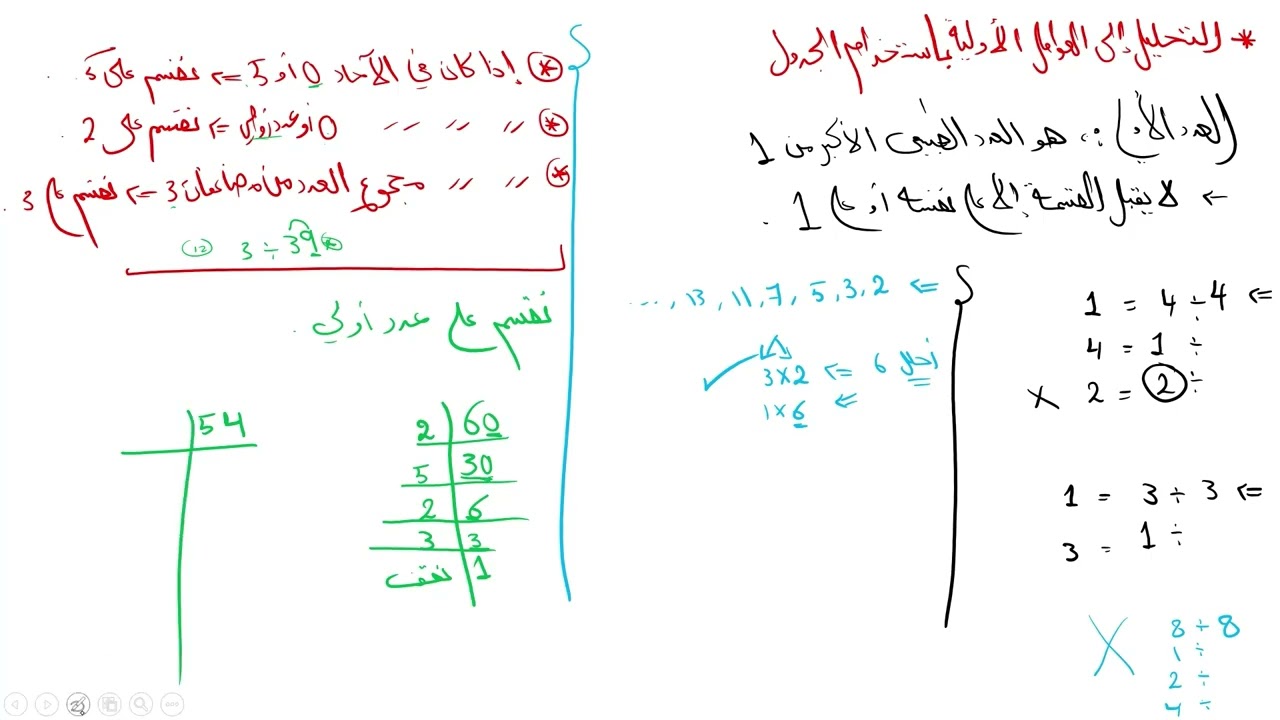 * التحليل إلى العوامل الأولية باستخدام الجدول
(العدد الأولي) :، هو العدد الطبيعي الأكبر من 1
← لا يقبل القسمة إلا على نفسه أو على 1 .
⇐ 4 ÷ 4 = 1
÷ 1 = 4
÷ 2 = 2 ×
⇐ 3 ÷ 3 = 1
÷ 1 = 3
8 ÷ 8 ×
÷ 1
÷ 2
÷ 4
⇐ 2 , 3 , 5 , 7 , 11 , 13 , ...
أحلل 6 ⇐ 2 × 3 ✓
⇐ 6 × 1
* إذا كان في الآحاد 0 أو 5 ⇐ نقسم على 5 .
* 〃 〃 〃 0 أو عدد زوجي ⇐ نقسم على 2 .
* 〃 〃 مجموع العدد من مضاعفات 3 ⇐ نقسم على 3 .
* 39 ÷ 3 (12)
نقسم على عدد أولي .
60 | 2
30 | 5
6 | 2
3 | 3
1 | نقف
54 |